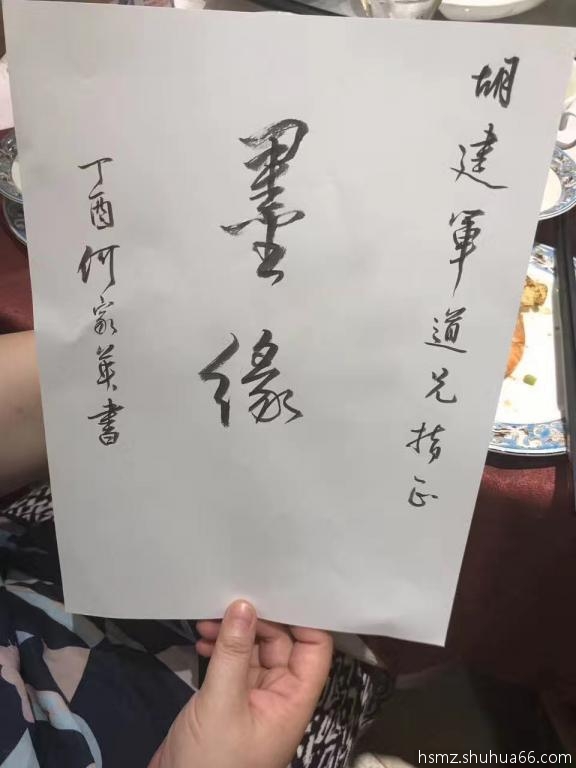 胡建军道兄指正
墨缘
丁酉何家英书
hsmz.shuhua66.com